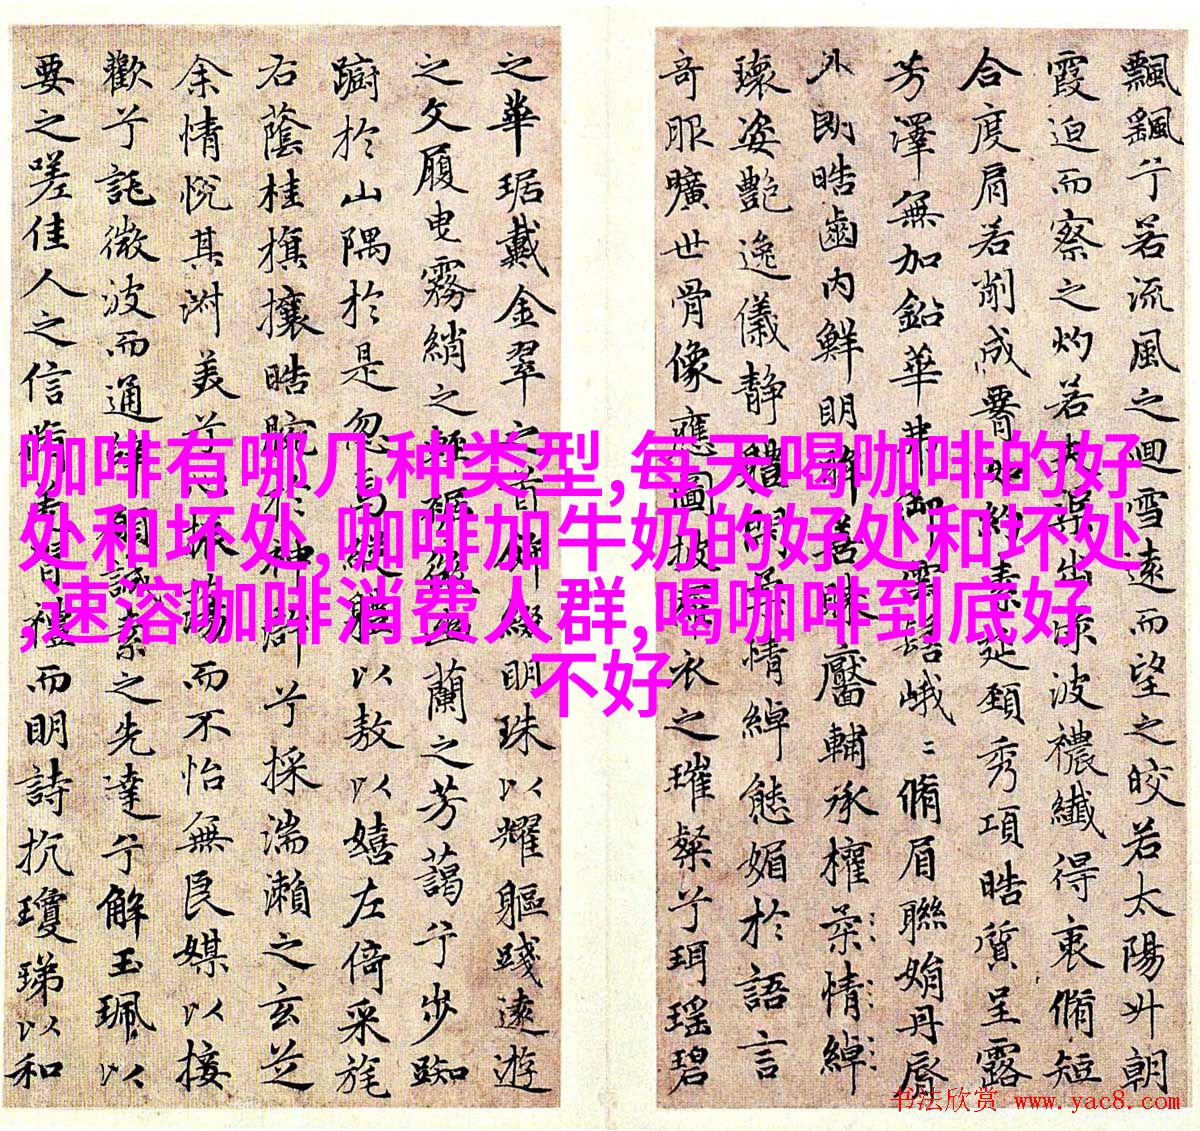 飄飖兮若流風之迴雪遠而望之皎若太陽升朝
霞迫而察之灼若夫渠出渌波襛纖得衷脩短
合度肩若削成腰如約素延頸秀項皓質呈露
芳澤無加鉛華弗御雲髻峨﹕脩眉聯娟丹脣
外朗皓齒内鮮明眸善睞靨輔承權柔情綽
瓌姿艶逸儀靜體閑柔情綽態媚於語言
奇服曠世骨像應圖披羅衣之璀粲兮珥瑶碧
之華琚戴金翠之首飾綴明珠以耀軀踐遠遊
之文履曳霧綃之輕裾微幽蘭之芳藹兮步踟
蹰於山隅於是忽焉縱體以敖以嬉左倚采旄
右蔭桂旗攘皓腕於神滸兮採湍瀨之玄芝
余情悅其淑美兮心振蕩而不怡無良媒以接
歡兮託微波而通辭願誠素之先達兮解玉珮以
要之嗟佳人之信脩羌習禮而明詩抗瓊珶以和
咖啡有哪几种类型,每天喝咖啡的好
处和坏处,咖啡加牛奶的好处和坏处
,速溶咖啡消费人群,喝咖啡到底好
不好
书法欣赏 www.yac8.com